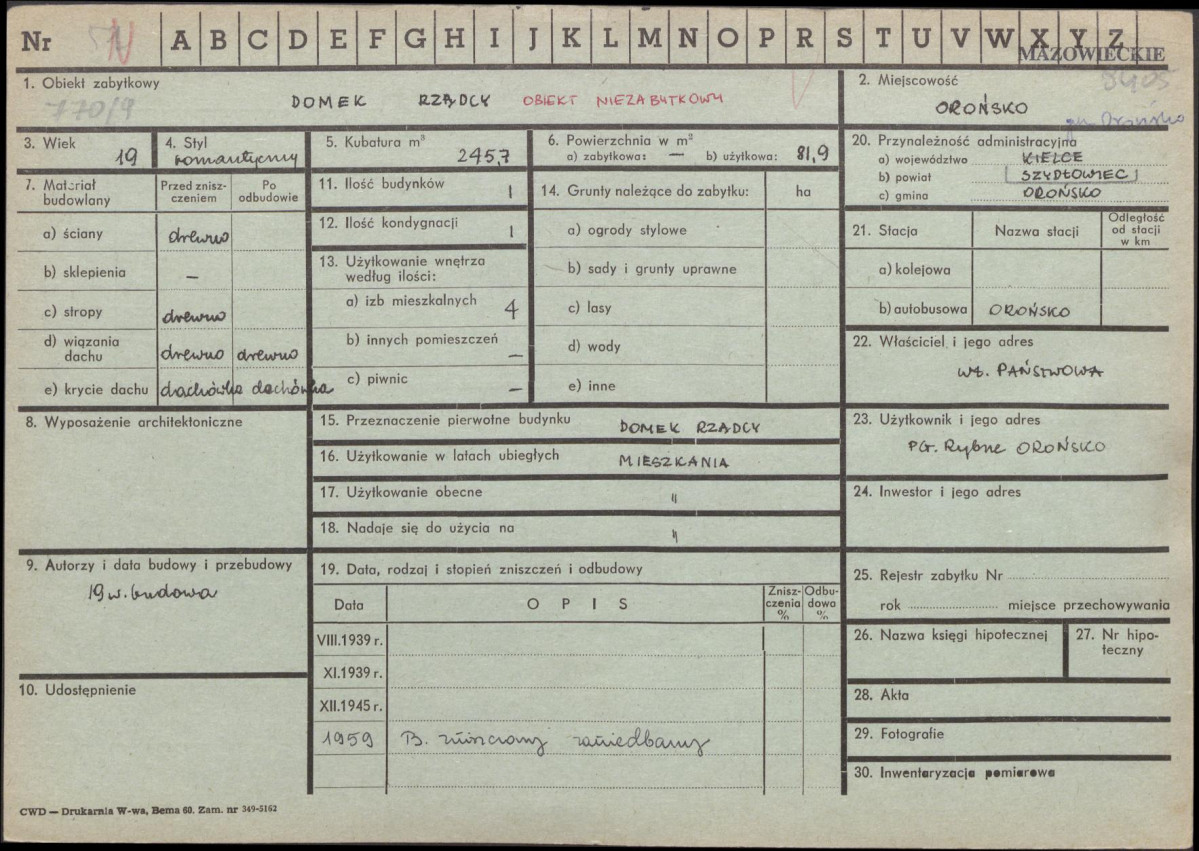 Nr N A B C D E F G H I J K L M N O P R S T U V W X Y Z
MAZOWIECKIE
1. Obiekt zabytkowy
770/9
DOMEK RZĄDCY OBIEKT NIEZABYTKOWY
2. Miejscowość
8405
OROŃSKO
gm. Orońsko
3. Wiek
19
4. Styl
romantyczny
5. Kubatura m³
245,7
6. Powierzchnia w m²
a) zabytkowa: — b) użytkowa: 81,9
20. Przynależność administracyjna
a) województwo KIELCE
b) powiat [SZYDŁOWIEC]
c) gmina OROŃSKO
7. Materiał budowlany
Przed znisz-
czeniem
Po
odbudowie
a) ściany drewno
b) sklepienia —
c) stropy drewno
d) wiązania
dachu drewno drewno
e) krycie dachu dachówka dachówka
11. Ilość budynków 1
12. Ilość kondygnacji 1
13. Użytkowanie wnętrza
według ilości:
a) izb mieszkalnych 4
b) innych pomieszczeń —
c) piwnic —
14. Grunty należące do zabytku: ha
a) ogrody stylowe
b) sady i grunty uprawne
c) lasy
d) wody
e) inne
21. Stacja Nazwa stacji
Odległość
od stacji
w km
a) kolejowa
b) autobusowa OROŃSKO
22. Właściciel i jego adres
wł. PAŃSTWOWA
8. Wyposażenie architektoniczne
15. Przeznaczenie pierwotne budynku DOMEK RZĄDCY
16. Użytkowanie w latach ubiegłych MIESZKANIA
17. Użytkowanie obecne "
18. Nadaje się do użycia na "
23. Użytkownik i jego adres
PG. Rybne OROŃSKO
24. Inwestor i jego adres
9. Autorzy i data budowy i przebudowy
19 w. budowa
10. Udostępnienie
19. Data, rodzaj i stopień zniszczeń i odbudowy
Data OPIS
Znisz-
czenia
%
Odbu-
dowa
%
VIII.1939 r.
XI.1939 r.
XII.1945 r.
1959 B. zniszczony zaniedbany
25. Rejestr zabytku Nr
rok miejsce przechowywania
26. Nazwa księgi hipotecznej
27. Nr hipo-
teczny
28. Akta
29. Fotografie
30. Inwentaryzacja pomiarowa
CWD — Drukarnia W-wa, Bema 60. Zam. nr 349-5162